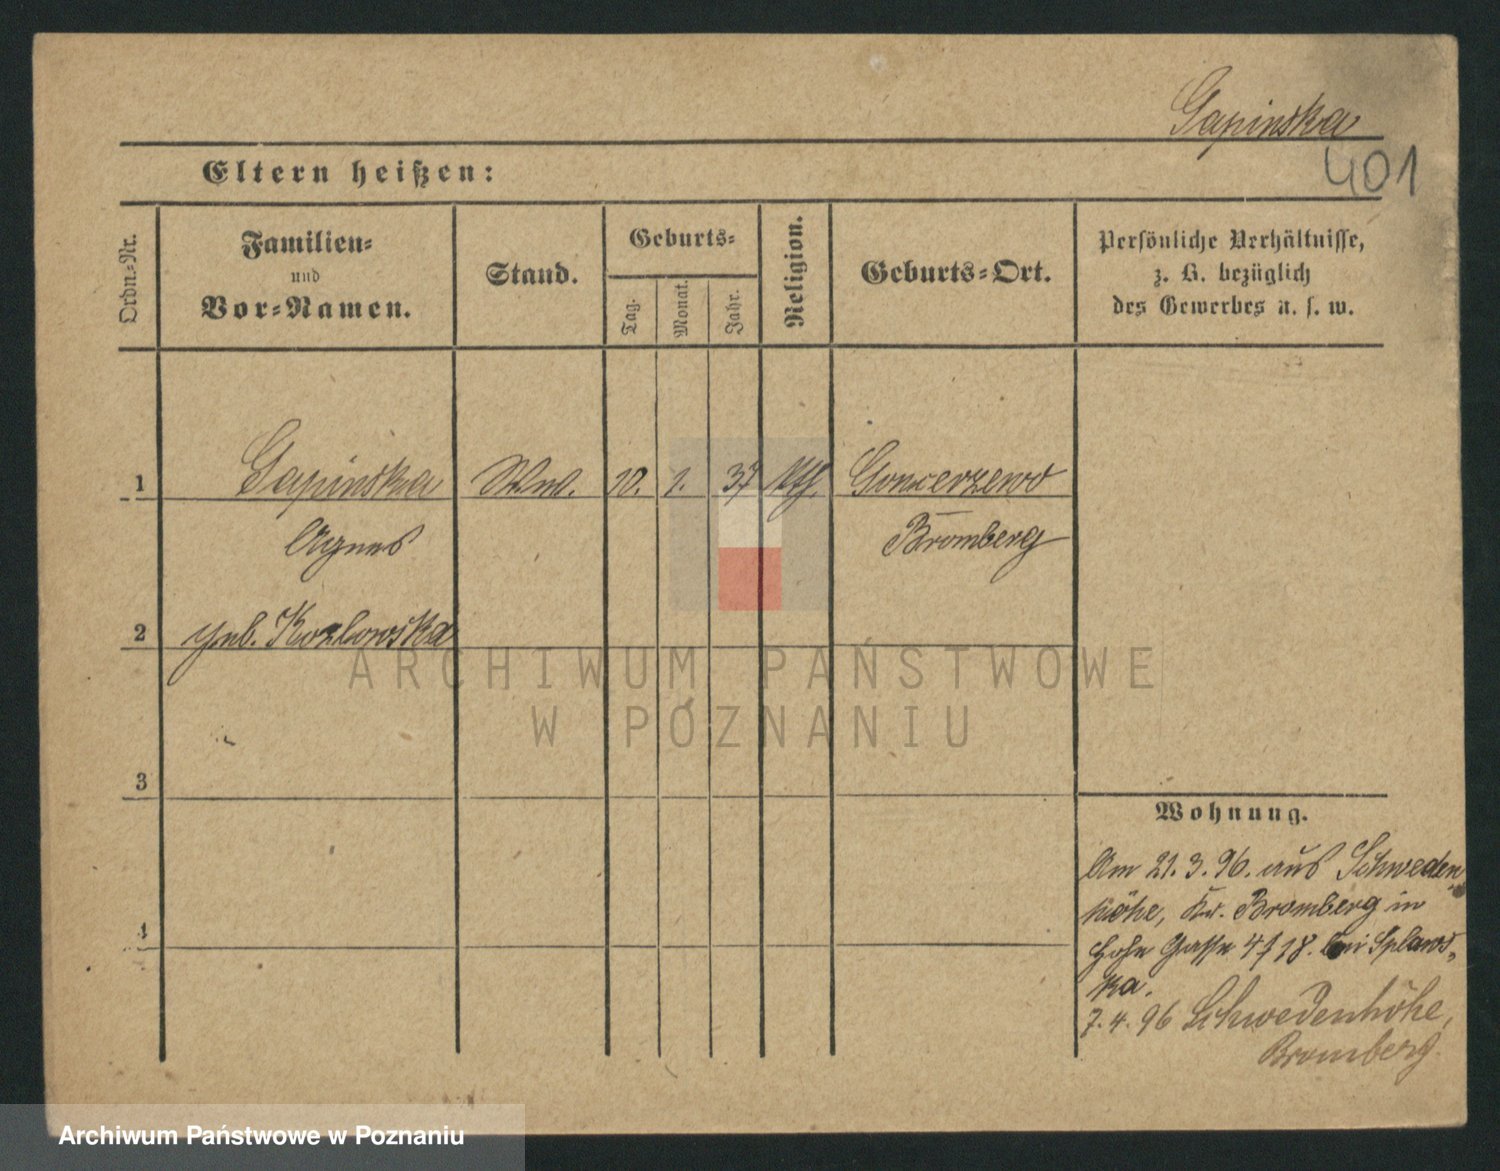 Gapinska
401
Eltern heißen:
Ordn.-Nr.
Familien-
und
Vor-Namen.
Stand.
Geburts-
Tag.
Monat.
Jahr.
Religion.
Geburts-Ort.
Persönliche Verhältnisse,
z. B. bezüglich
des Gewerbes u. s. w.
1 Gapinska Ww. 10. 1. 37 kth. Goncerzewo
Agnes Bromberg
2 geb. Kozlowska
3
4
Wohnung.
Am 21.3.96. aus Schweden
höhe, Kr. Bromberg in
Hohe Gasse 4/18. bei Splaws-
ka.
7.4.96 Schwedenhöhe,
Bromberg.
ARCHIWUM PAŃSTWOWE
W POZNANIU
Archiwum Państwowe w Poznaniu